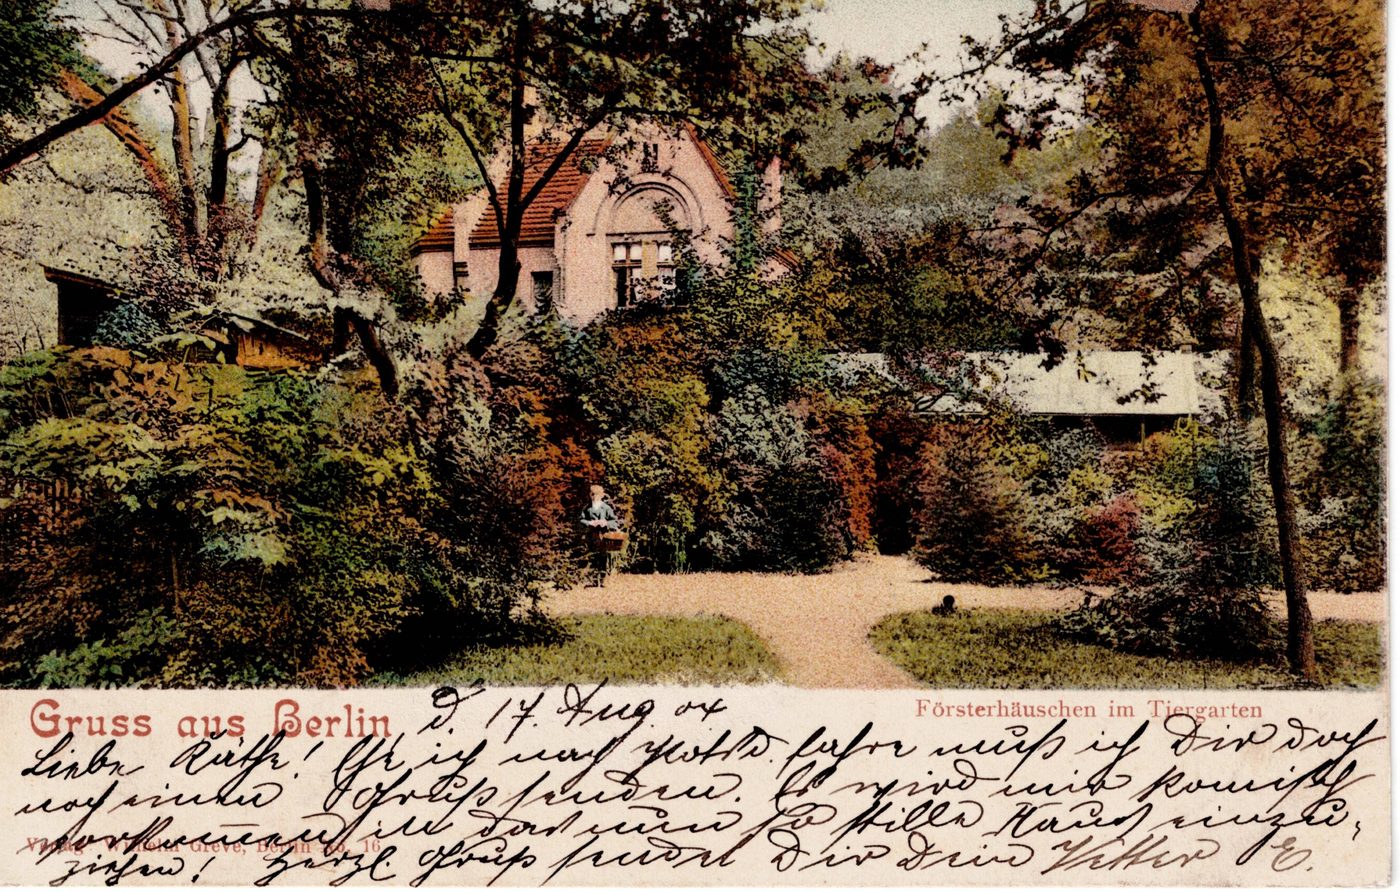 Gruss aus Berlin
d. 17. Aug. 04
Försterhäuschen im Tiergarten
Liebe Käthe! Ehe ich nach Potsd. fahre muß ich Dir doch
noch einen Gruß senden. Es wird mir komisch
vorkommen in das nun so stille Haus einzu-
Verlag Wilhelm Greve, Berlin No. 16
ziehen! Herzl. Gruß sendet Dir Dein Vetter E.